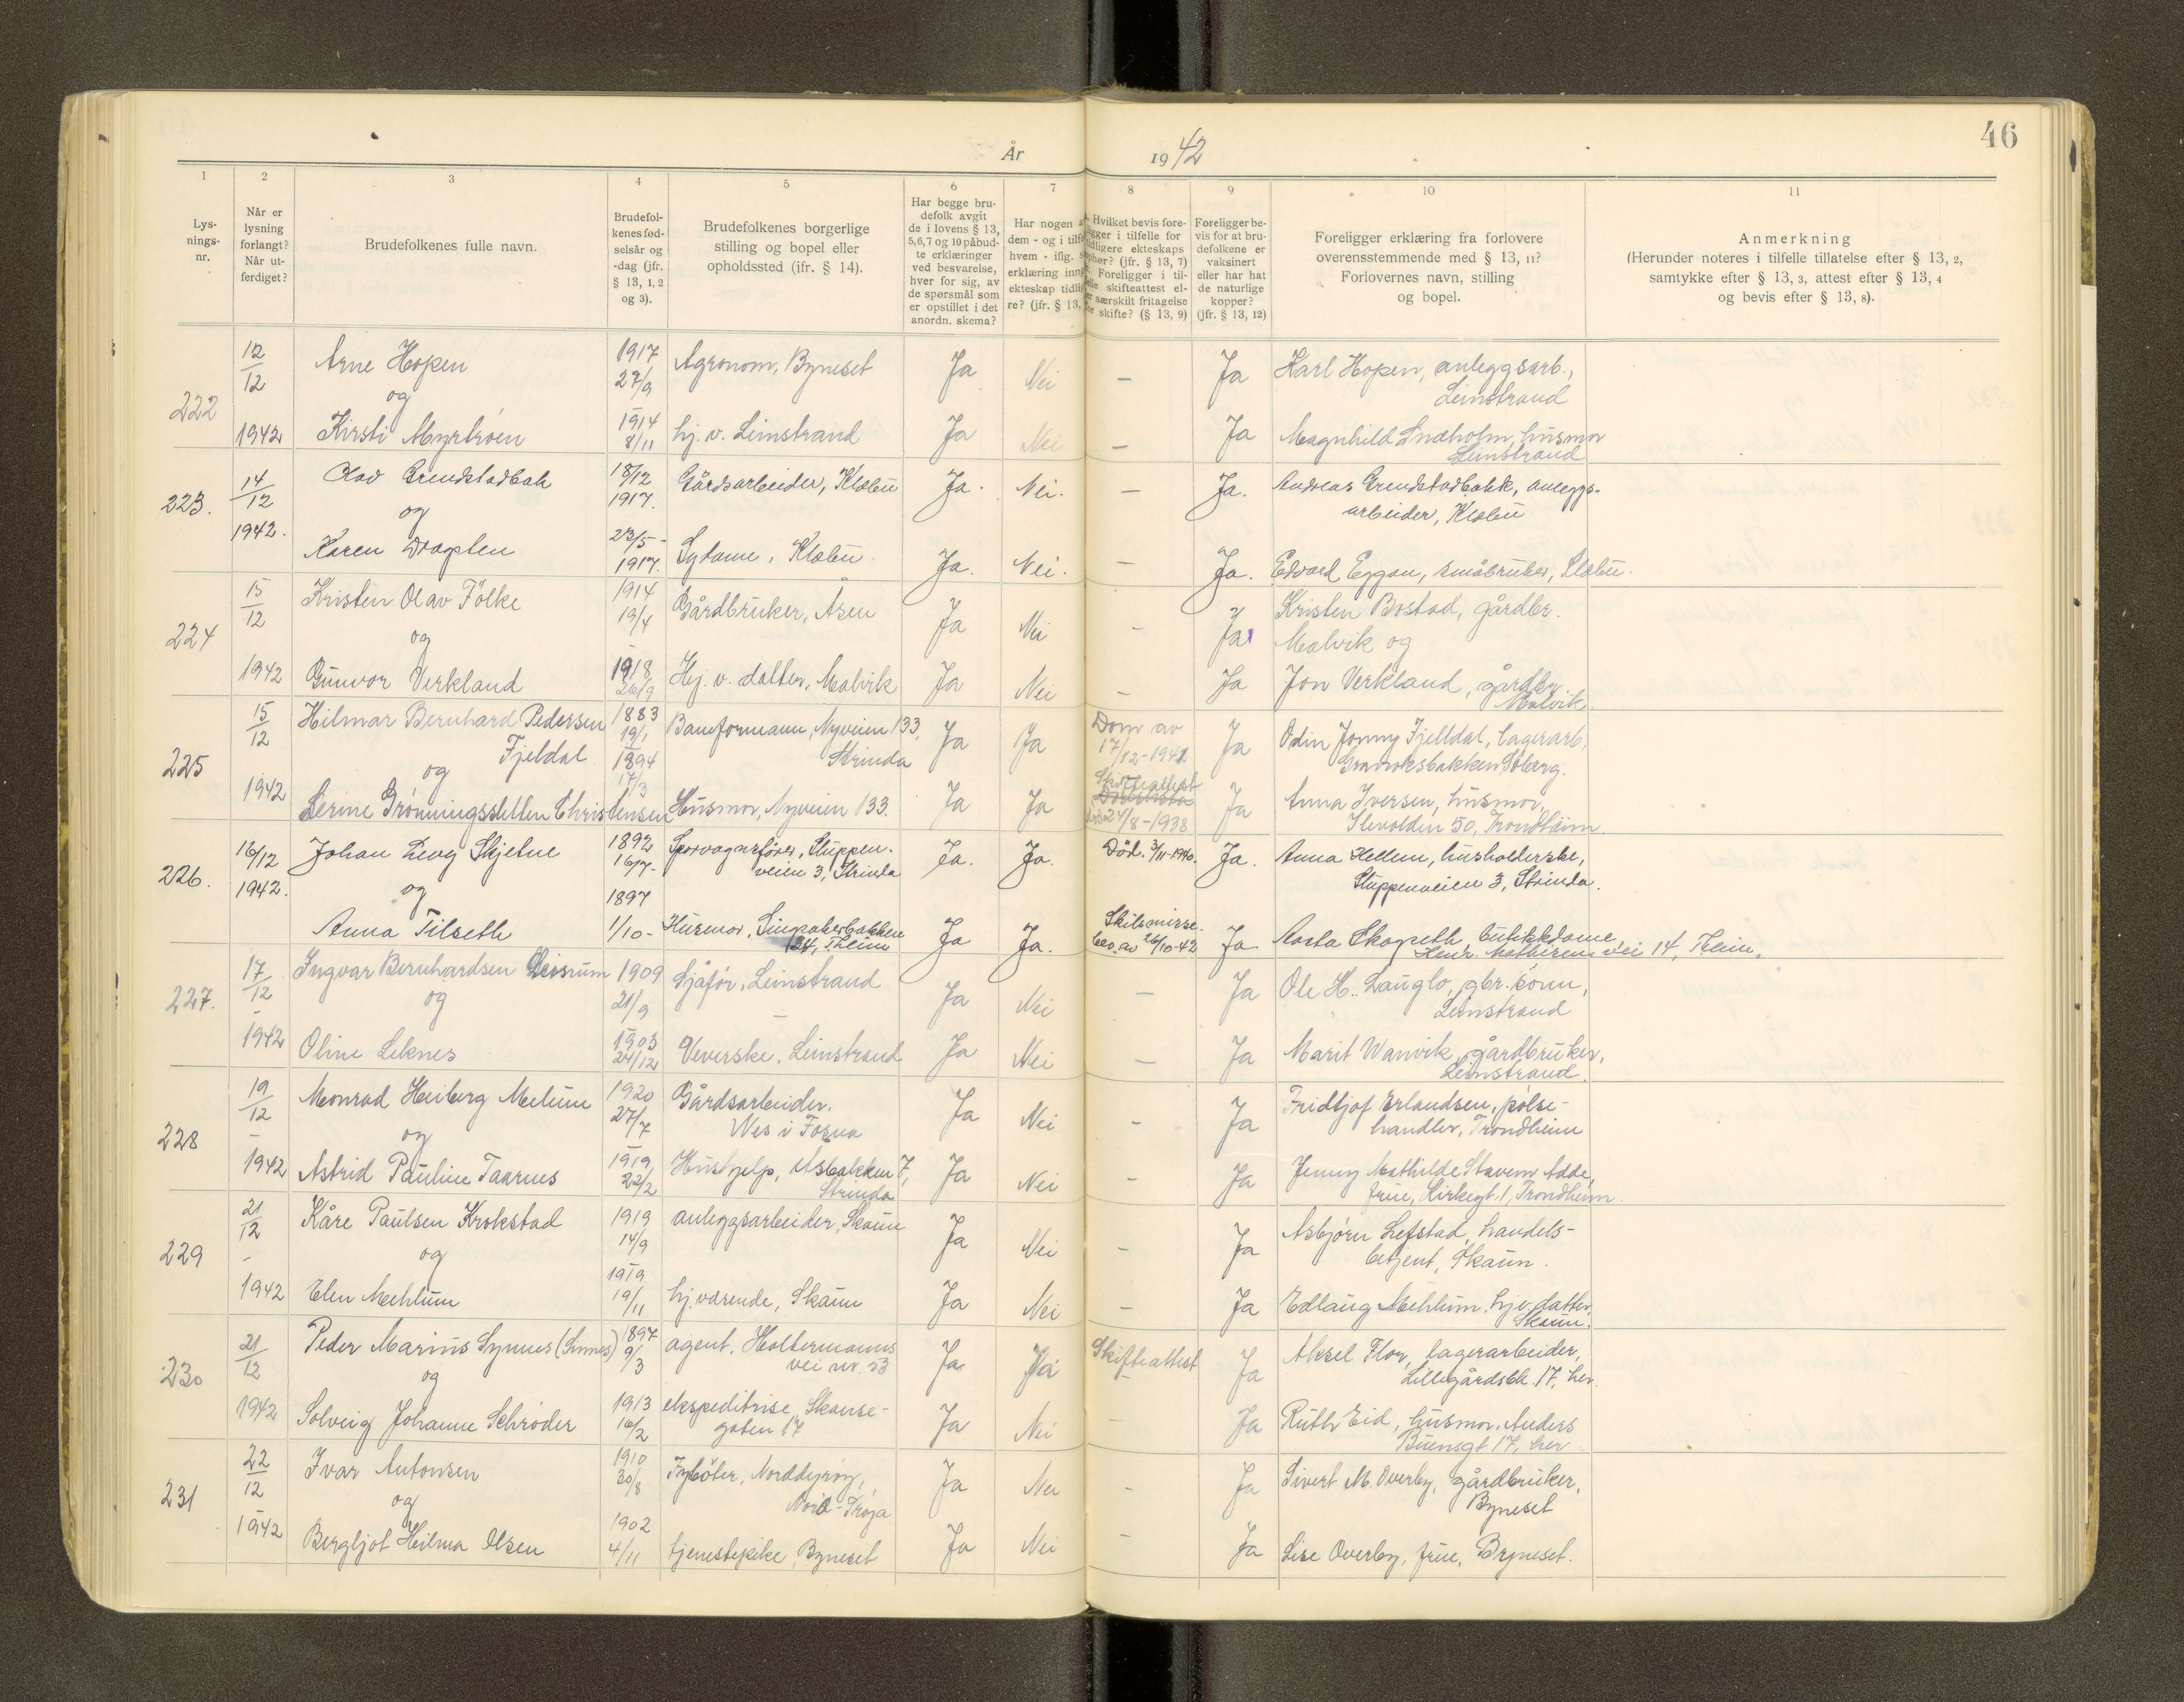 46
År 1942
1 2 3 4 5 6 7 8 9 10 11
Lys-
nings-
nr.
Når er
lysning
forlangt?
Når ut-
ferdiget?
Brudefolkenes fulle navn.
Brudefol-
kenes fød-
selsår og
-dag (jfr.
§ 13, 1, 2
og 3).
Brudefolkenes borgerlige
stilling og bopel eller
opholdssted (jfr. § 14).
Har begge bru-
defolk avgit
de i lovens § 13,
5, 6, 7 og 10 påbud-
te erklæringer
ved besvarelse,
hver for sig, av
de spørsmål som
er opstillet i det
anordn. skema?
Har nogen a
dem - og i tilfe
hvem - iflg. s
erklæring inng
ekteskap tidlig
re? (jfr. § 13,
Hvilket bevis fore-
ligger i tilfelle for
tidligere ekteskaps
ophør? (jfr. § 13, 7)
Foreligger i til-
felle skifteattest el-
ler særskilt fritagelse
for skifte? (§ 13, 9)
Foreligger be-
vis for at bru-
defolkene er
vaksinert
eller har hat
de naturlige
kopper?
(jfr. § 13, 12)
Foreligger erklæring fra forlovere
overensstemmende med § 13, 11?
Forlovernes navn, stilling
og bopel.
Anmerkning
(Herunder noteres i tilfelle tillatelse efter § 13, 2,
samtykke efter § 13, 3, attest efter § 13, 4
og bevis efter § 13, 8).
222 12/12 1942 Arne Hopen 1917 27/9 Agronom, Byneset Ja Nei — Ja Karl Hopen, anleggsarb.,
Leinstrand
og
Kirsti Myrtrøen 1914 8/11 hj. v. Leinstrand Ja Nei — Ja Magnhild Lindholm, husmor
Leinstrand
223. 14/12 1942. Olav Grendstadbak 18/12 1917. Gårdsarbeider, Klæbu Ja. Nei. — Ja. Andreas Grendstadbakk, anleggs-
arbeider, Klæbu
og
Karen Dragsten 23/5- 1917. Sydame, Klæbu. Ja. Nei. — Ja. Edvard Eggan, småbruker, Klæbu.
224 15/12 1942 Kristen Olav Fölke 1914 19/4 Gårdbruker, Åsen Ja Nei – Ja Kristen Bostad, gårdbr.
Malvik og
og
Gunvor Verkland 1918 26/9 Hj. v. datter, Malvik Ja Nei – Ja Jon Verkland, gårdbr.
Malvik.
225 15/12 1942 Hilmar Bernhard Pedersen
Fjeldal 1883 19/1 Baneformann, Nyveien 133,
Strinda Ja Ja Dom av
17/12-1941 Ja Odin Jonny Fjelldal, lagerarb.,
Søberg.
og
Lerine Grønningssletten Christensen 1894 17/3 Husmor, Nyveien 133. Ja Ja Skifteattest
24/8-1938 Ja Anna Iversen, husmor,
Ilevolden 50, Trondheim
226. 16/12 1942. Johan Levy Skjetne 1892 16/7- Sporvognsfører, Stuppen-
veien 3, Strinda Ja. Ja. Död. 3/11-1940. Ja. Anna Hellem, husholderske,
Stuppenveien 3, Strinda.
og
Anna Tilseth 1897 1/10- Husmor, Singsakerbakken
24, Tr.heim Ja Ja. Skilsmisse-
bev. av 26/10-42 Ja Aasta Skogseth, butikkdame
Henr. Mathisens vei 14, Tr.heim.
227. 17/12 1942 Ingvar Bernhardsen Leinum 1909 21/9 Sjåfør, Leinstrand Ja Nei — Ja Ole H. Lauglo, gbr. sønn,
Leinstrand
og
Oline Leknes 1903 24/12 Veverske, Leinstrand Ja Nei — Ja Marit Wanvik, gårdbruker,
Leinstrand.
228 19/12 1942 Monrad Heiberg Melum 1920 27/7 Gårdsarbeider.
Nes i Fosna Ja Nei – Ja Fridtjof Erlandsen, pølse-
handler, Trondheim
og
Astrid Pauline Taarnes 1919 22/2 Hushjelp, Åsbakken 7,
Strinda Ja Nei – Ja Jenny Mathilde Stavem Adde,
frue, Kirkegt. 1, Trondheim.
229 21/12 1942 Kåre Paulsen Krokstad 1919 14/9 anleggsarbeider, Skaun Ja Nei – Ja Asbjørn Lefstad, handels-
betjent, Skaun.
og
Elen Mehlum 1919 19/11 hj. værende, Skaun Ja Nei – Ja Edlaug Mehlum, hjv. datter,
Skaun.
230 21/12 1942 Peder Marius Synnes (Sinnes) 1897 9/3 agent, Holtermanns
vei nr. 23 Ja Ja Skifteattest Ja Aksel Flor, lagerarbeider,
Lillegårdsbk. 17, her.
og
Solveig Johanne Schrøder 1913 16/2 ekspeditrise, Skanse-
gaten 17 Ja Nei – Ja Ruth Eid, husmor, Anders
Buensgt 17, her.
231 22/12 1942 Ivar Antonsen 1910 30/8 Fyrbøter, Norddyrøy,
Nord-Frøya Ja Nei – Ja Sivert M. Overby, gårdbruker,
Byneset
og
Bergljot Helma Olsen 1902 4/11 tjenestepike, Byneset Ja Nei – Ja Lise Overby, frue, Byneset.